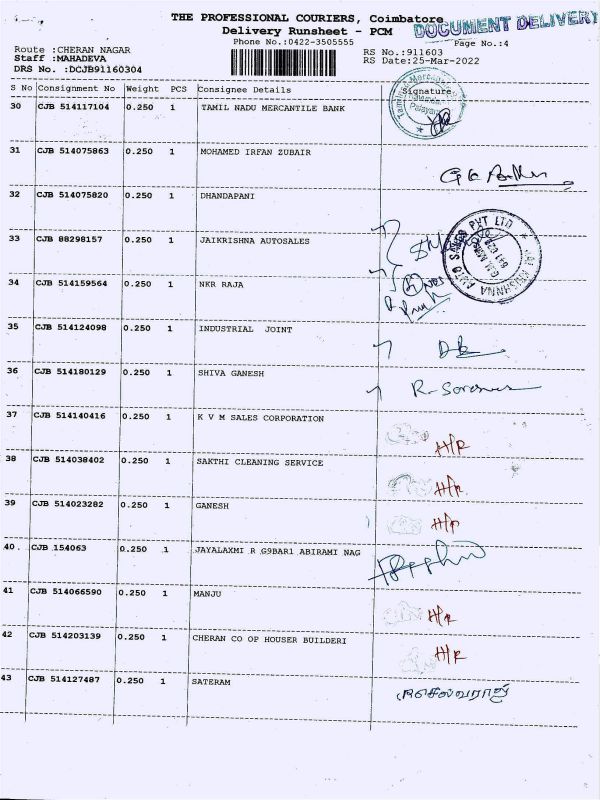 THE PROFESSIONAL COURIERS, Coimbatore
DOCUMENT DELIVERY
Delivery Runsheet - PCM
Phone No.:0422-3505555
Page No.:4
Route :CHERAN NAGAR
RS No.:911603
Staff :MAHADEVA
RS Date:25-Mar-2022
DRS No. :DCJB91160304
S No Consignment No Weight PCS Consignee Details Signature
30 CJB 514117104 0.250 1 TAMIL NADU MERCANTILE BANK
31 CJB 514075863 0.250 1 MOHAMED IRFAN ZUBAIR
32 CJB 514075820 0.250 1 DHANDAPANI
33 CJB 88298157 0.250 1 JAIKRISHNA AUTOSALES
JAI KRISHNNA AUTO SALES PVT LTD
34 CJB 514159564 0.250 1 NKR RAJA
35 CJB 514124098 0.250 1 INDUSTRIAL JOINT
36 CJB 514180129 0.250 1 SHIVA GANESH
37 CJB 514140416 0.250 1 K V M SALES CORPORATION H/R
38 CJB 514038402 0.250 1 SAKTHI CLEANING SERVICE H/R
39 CJB 514023282 0.250 1 GANESH H/R
40. CJB 154063 0.250 1 JAYALAXMI R G9BAR1 ABIRAMI NAG
41 CJB 514066590 0.250 1 MANJU H/R
42 CJB 514203139 0.250 1 CHERAN CO OP HOUSER BUILDERI H/R
43 CJB 514127487 0.250 1 SATERAM செல்வராஜ்